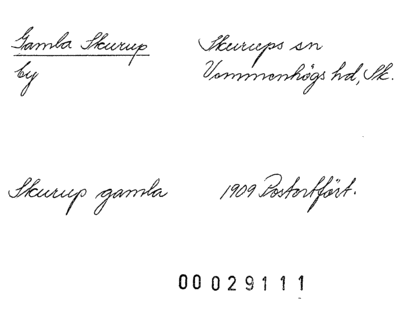 Gamla Skurup Skurups sn
by Vemmenhögs hd, Sk.
Skurup gamla 1909 Postortfört.
00029111